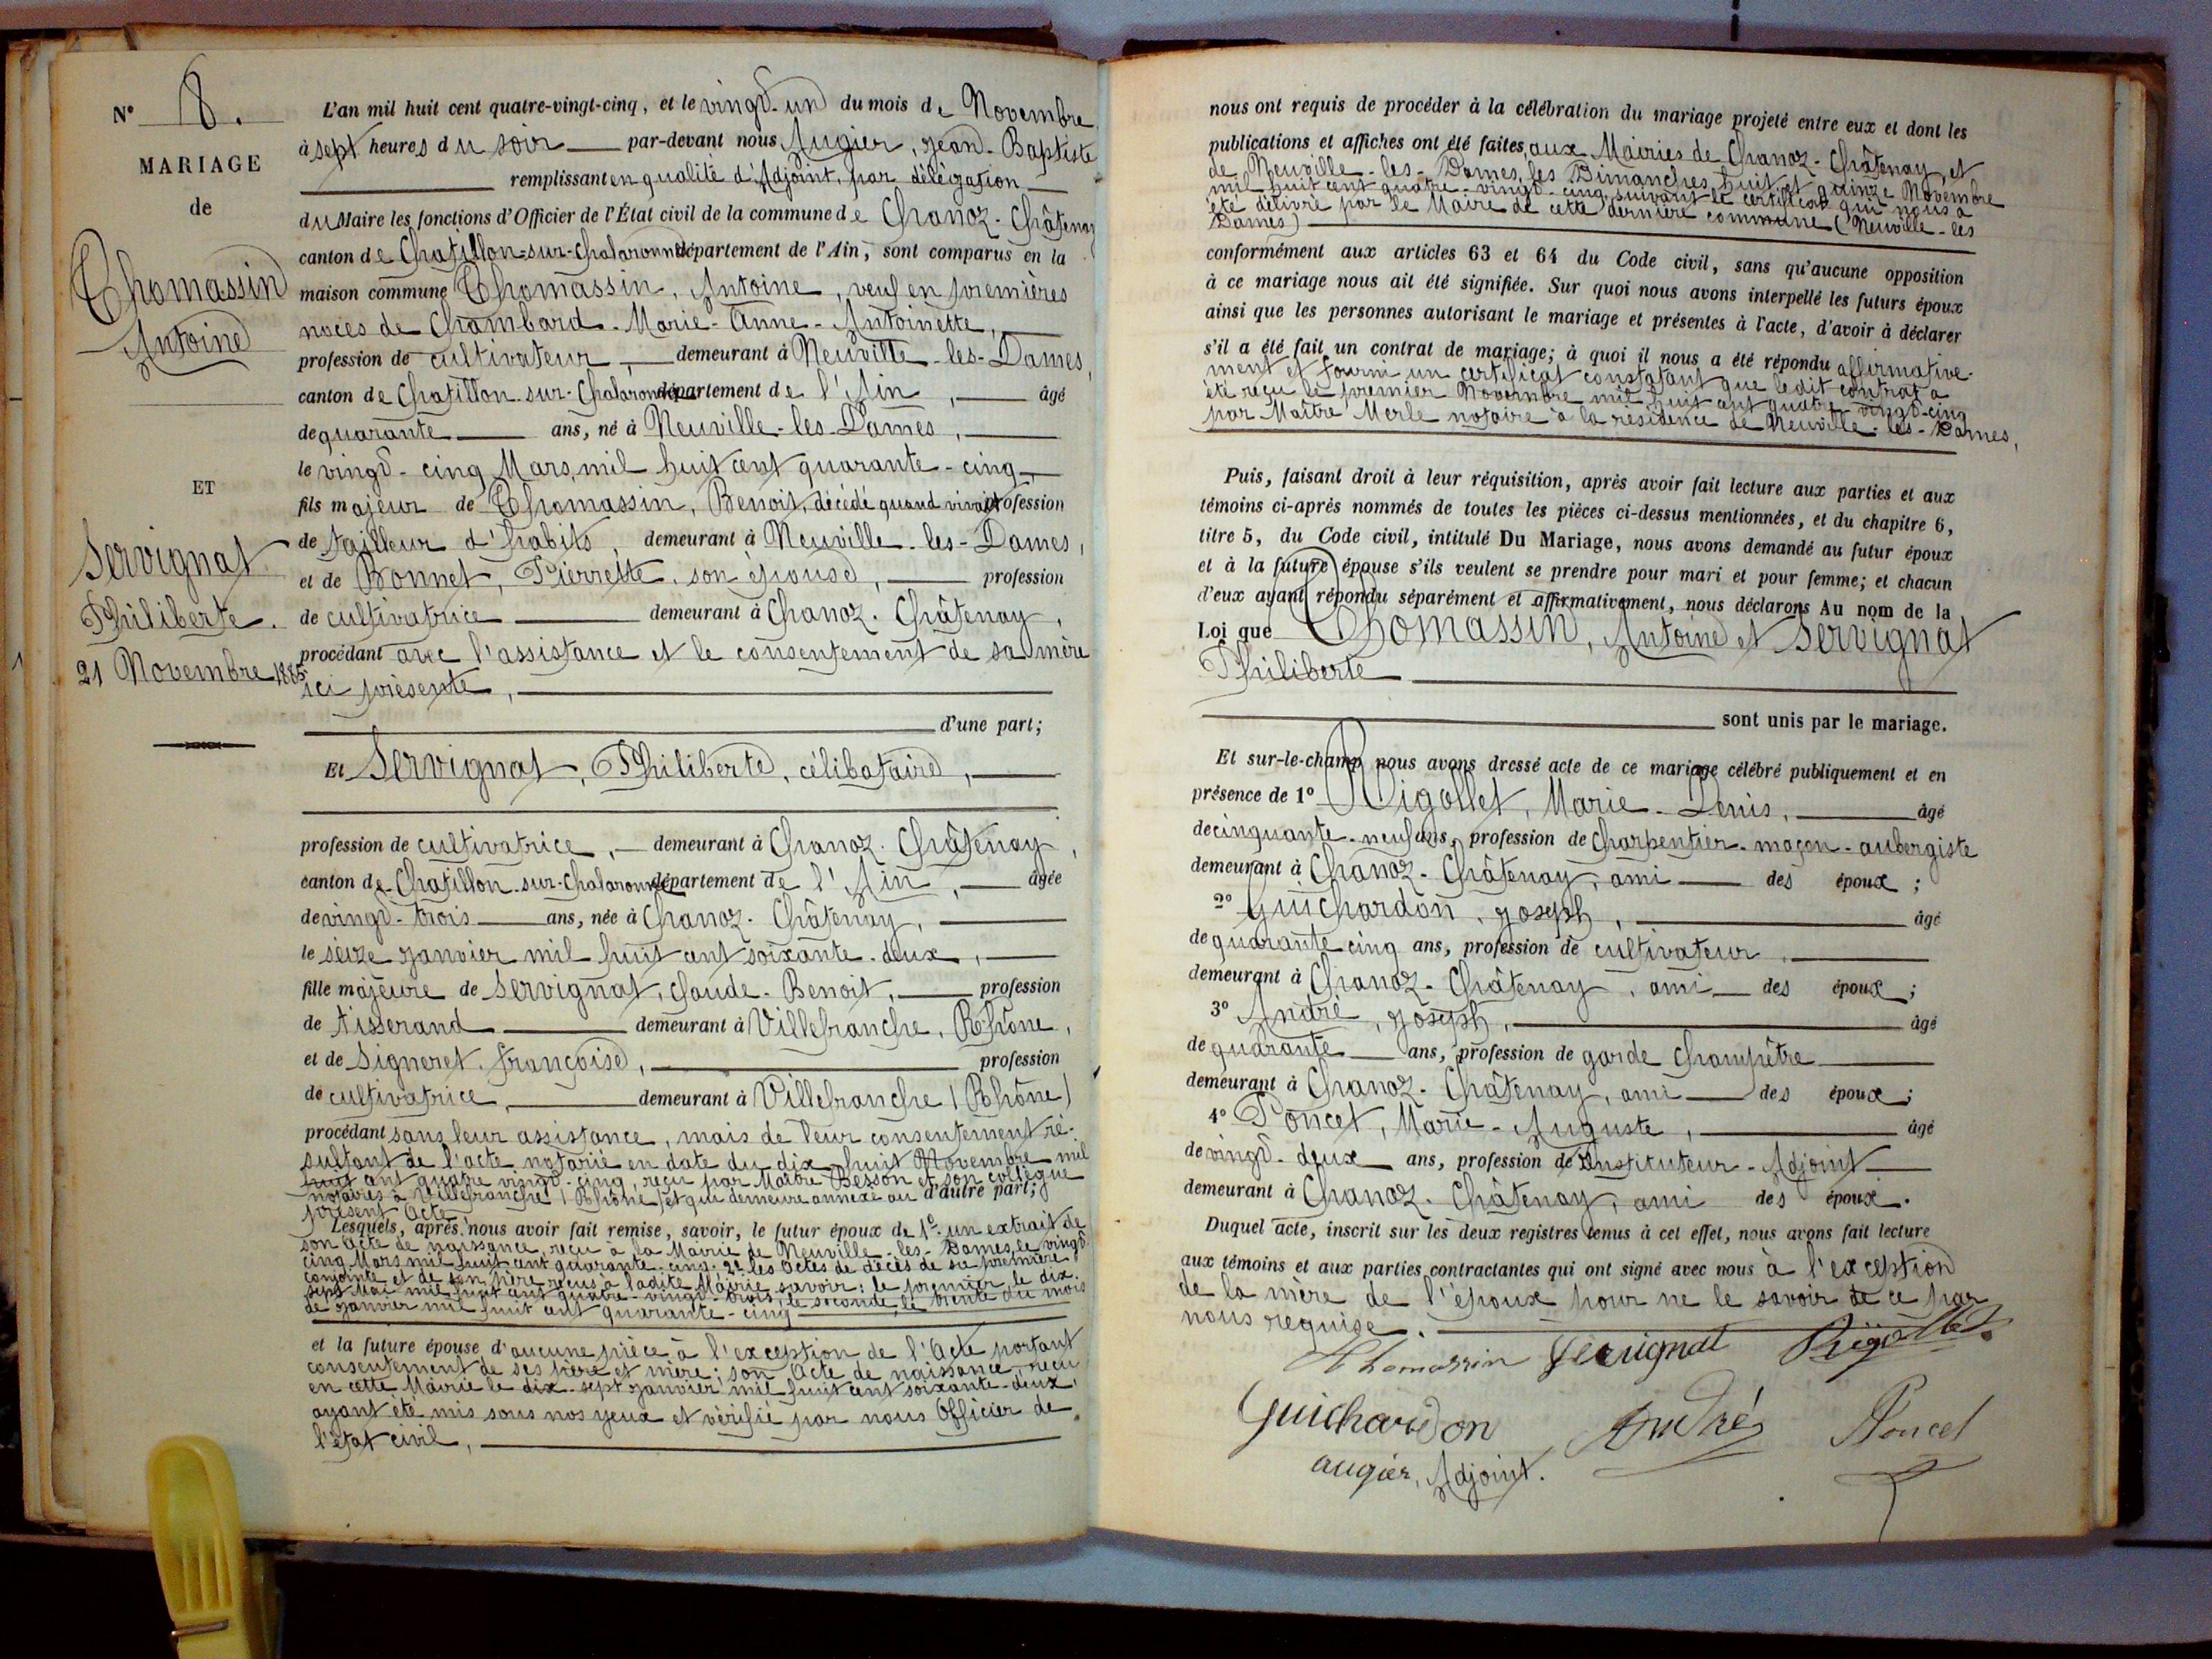 N° 8.
MARIAGE
de
Thomassin
Antoine
ET
Servignat
Philiberte.
21 Novembre 1885
L'an mil huit cent quatre-vingt-cinq, et le vingt-un du mois de Novembre
à sept heures du soir par-devant nous Augier, Jean-Baptiste
remplissant en qualité d'Adjoint, par délégation
du Maire les fonctions d'Officier de l'État civil de la commune de Chanoz-Châtenay
canton de Chatillon-sur-Chalaronne département de l'Ain, sont comparus en la
maison commune Thomassin, Antoine, veuf en premières
noces de Chambard-Marie-Anne-Antoinette,
profession de cultivateur, demeurant à Neuville-les-Dames,
canton de Chatillon-sur-Chalaronne département de l'Ain, âgé
de quarante ans, né à Neuville-les-Dames,
le vingt-cinq Mars, mil huit cent quarante-cinq
fils majeur de Thomassin, Benoit, décédé quand vivait profession
de tailleur d'habits, demeurant à Neuville-les-Dames,
et de Bonnet, Pierrette, son épouse, profession
de cultivatrice demeurant à Chanoz-Châtenay,
procédant avec l'assistance et le consentement de sa mère
ici présente,
d'une part;
Et Servignat, Philiberte, célibataire,
profession de cultivatrice, demeurant à Chanoz-Châtenay,
canton de Chatillon-sur-Chalaronne département de l'Ain, âgée
de vingt-trois ans, née à Chanoz-Châtenay,
le seize janvier mil huit cent soixante-deux,
fille majeure de Servignat, Claude-Benoit, profession
de tisserand demeurant à Villefranche, Rhône,
et de Signeret, françoise, profession
de cultivatrice, demeurant à Villefranche (Rhône)
procédant sans leur assistance, mais de leur consentement ré-
sultant de l'acte notarié en date du dix-huit Novembre mil
huit cent quatre vingt-cinq, reçu par Maître Besson et son collègue
notaires à Villefranche (Rhône) et qui demeure annexé au d'autre part;
présent Acte
Lesquels, après nous avoir fait remise, savoir, le futur époux de 1° un extrait de
son Acte de naissance, reçu à la Mairie de Neuville-les-Dames, le vingt
cinq Mars mil huit cent quarante-cinq. 2° les Actes de décès de sa première
conjointe et de son père reçus à ladite Mairie, savoir: le premier, le dix-
sept Mai mil huit cent quatre-vingt-trois, le seconde, le trente du mois
de janvier mil huit cent quarante-cinq
et la future épouse d'aucune pièce à l'exception de l'Acte portant
consentement de ses père et mère; son Acte de naissance reçu
en cette Mairie le dix-sept janvier mil huit cent soixante-deux,
ayant été mis sous nos yeux et vérifié par nous Officier de
l'état civil,
nous ont requis de procéder à la célébration du mariage projeté entre eux et dont les
publications et affiches ont été faites, aux Mairies de Chanoz-Châtenay, et
de Neuville-les-Dames, les Dimanches huit et quinze Novembre
mil huit cent quatre-vingt-cinq, suivant le certificat qui nous a
été délivré par le Maire de cette dernière commune (Neuville-les
Dames)
conformément aux articles 63 et 64 du Code civil, sans qu'aucune opposition
à ce mariage nous ait été signifiée. Sur quoi nous avons interpellé les futurs époux
ainsi que les personnes autorisant le mariage et présentes à l'acte, d'avoir à déclarer
s'il a été fait un contrat de mariage; à quoi il nous a été répondu affirmative-
ment et fourni un certificat constatant que ledit contrat a
été reçu le premier Novembre mil huit cent quatre-vingt-cinq
par Maître Merle notaire à la résidence de Neuville-les-Dames,
Puis, faisant droit à leur réquisition, après avoir fait lecture aux parties et aux
témoins ci-après nommés de toutes les pièces ci-dessus mentionnées, et du chapitre 6,
titre 5, du Code civil, intitulé Du Mariage, nous avons demandé au futur époux
et à la future épouse s'ils veulent se prendre pour mari et pour femme; et chacun
d'eux ayant répondu séparément et affirmativement, nous déclarons Au nom de la
Loi que Thomassin, Antoine et Servignat
Philiberte
sont unis par le mariage.
Et sur-le-champ nous avons dressé acte de ce mariage célébré publiquement et en
présence de 1° Rigollet, Marie-Denis, âgé
de cinquante-neuf ans, profession de Charpentier-maçon-aubergiste
demeurant à Chanoz-Châtenay, ami des époux;
2° Guichardon, Joseph, âgé
de quarante cinq ans, profession de cultivateur,
demeurant à Chanoz-Châtenay, ami des époux;
3° André, Joseph, âgé
de quarante ans, profession de garde champêtre
demeurant à Chanoz-Châtenay, ami des époux;
4° Poncet, Marie-Auguste, âgé
de vingt-deux ans, profession de Instituteur-Adjoint
demeurant à Chanoz-Châtenay, ami des époux.
Duquel acte, inscrit sur les deux registres tenus à cet effet, nous avons fait lecture
aux témoins et aux parties contractantes qui ont signé avec nous à l'exception
de la mère de l'époux pour ne le savoir de ce par
nous requise.
Thomassin Servignat Rigollet
Guichardon André Poncet
augier, Adjoint.